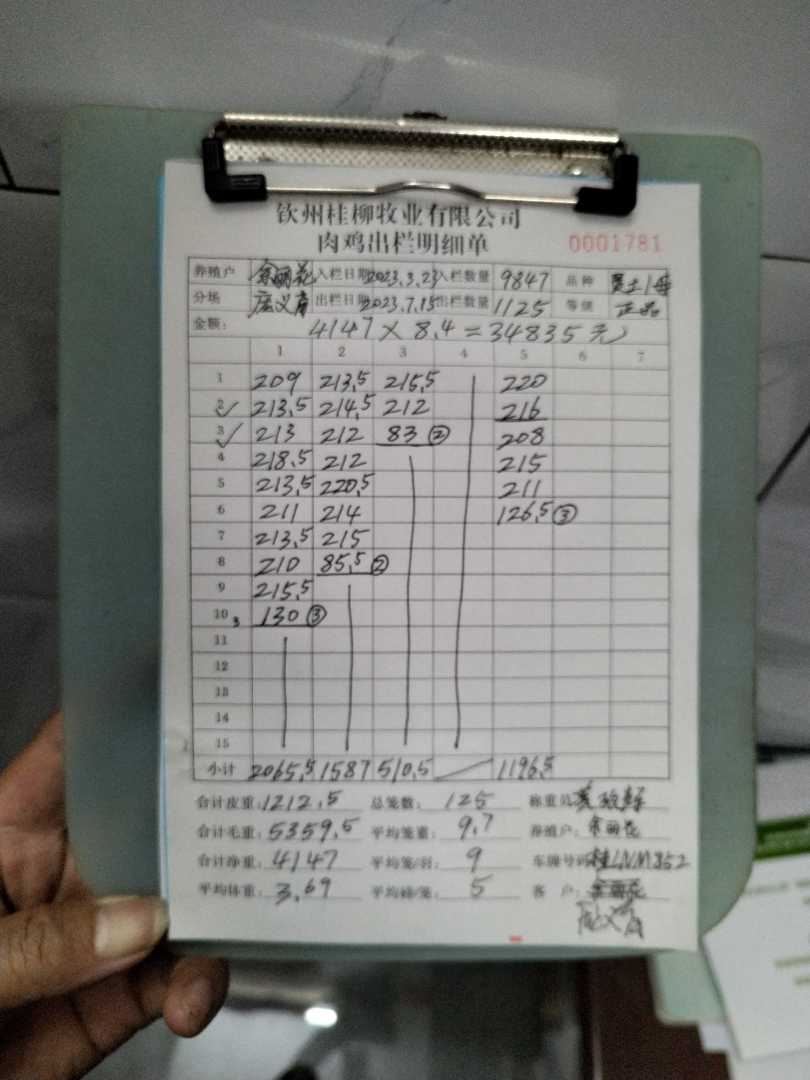 钦州桂柳牧业有限公司
肉鸡出栏明细单 0001781
养殖户 余丽花 入栏日期 2023.3.23 入栏数量 9847 品种 土1号
分场 出栏日期 2023.7.15 出栏数量 1125 等级 正品
金额: 4147 × 8.4 = 34835 元
1 2 3 4 5 6 7
1 209 213.5 215.5 220
2 213.5 214.5 212 216
3 213 212 83 ② 208
4 218.5 212 215
5 213.5 220.5 211
6 211 214 126.5 ③
7 213.5 215
8 210 85.5 ②
9 215.5
10 3 130 ③
11
12
13
14
15
小计 2065.5 1587 510.5 1196.5
合计皮重: 1212.5 总笼数: 125 称重员:
合计毛重: 5359.5 平均笼重: 9.7 养殖户: 余丽花
合计净重: 4147 平均笼/羽: 9 车牌号码 桂LNM852
平均体重: 3.69 平均磅/笼: 5 客 户: 余丽花